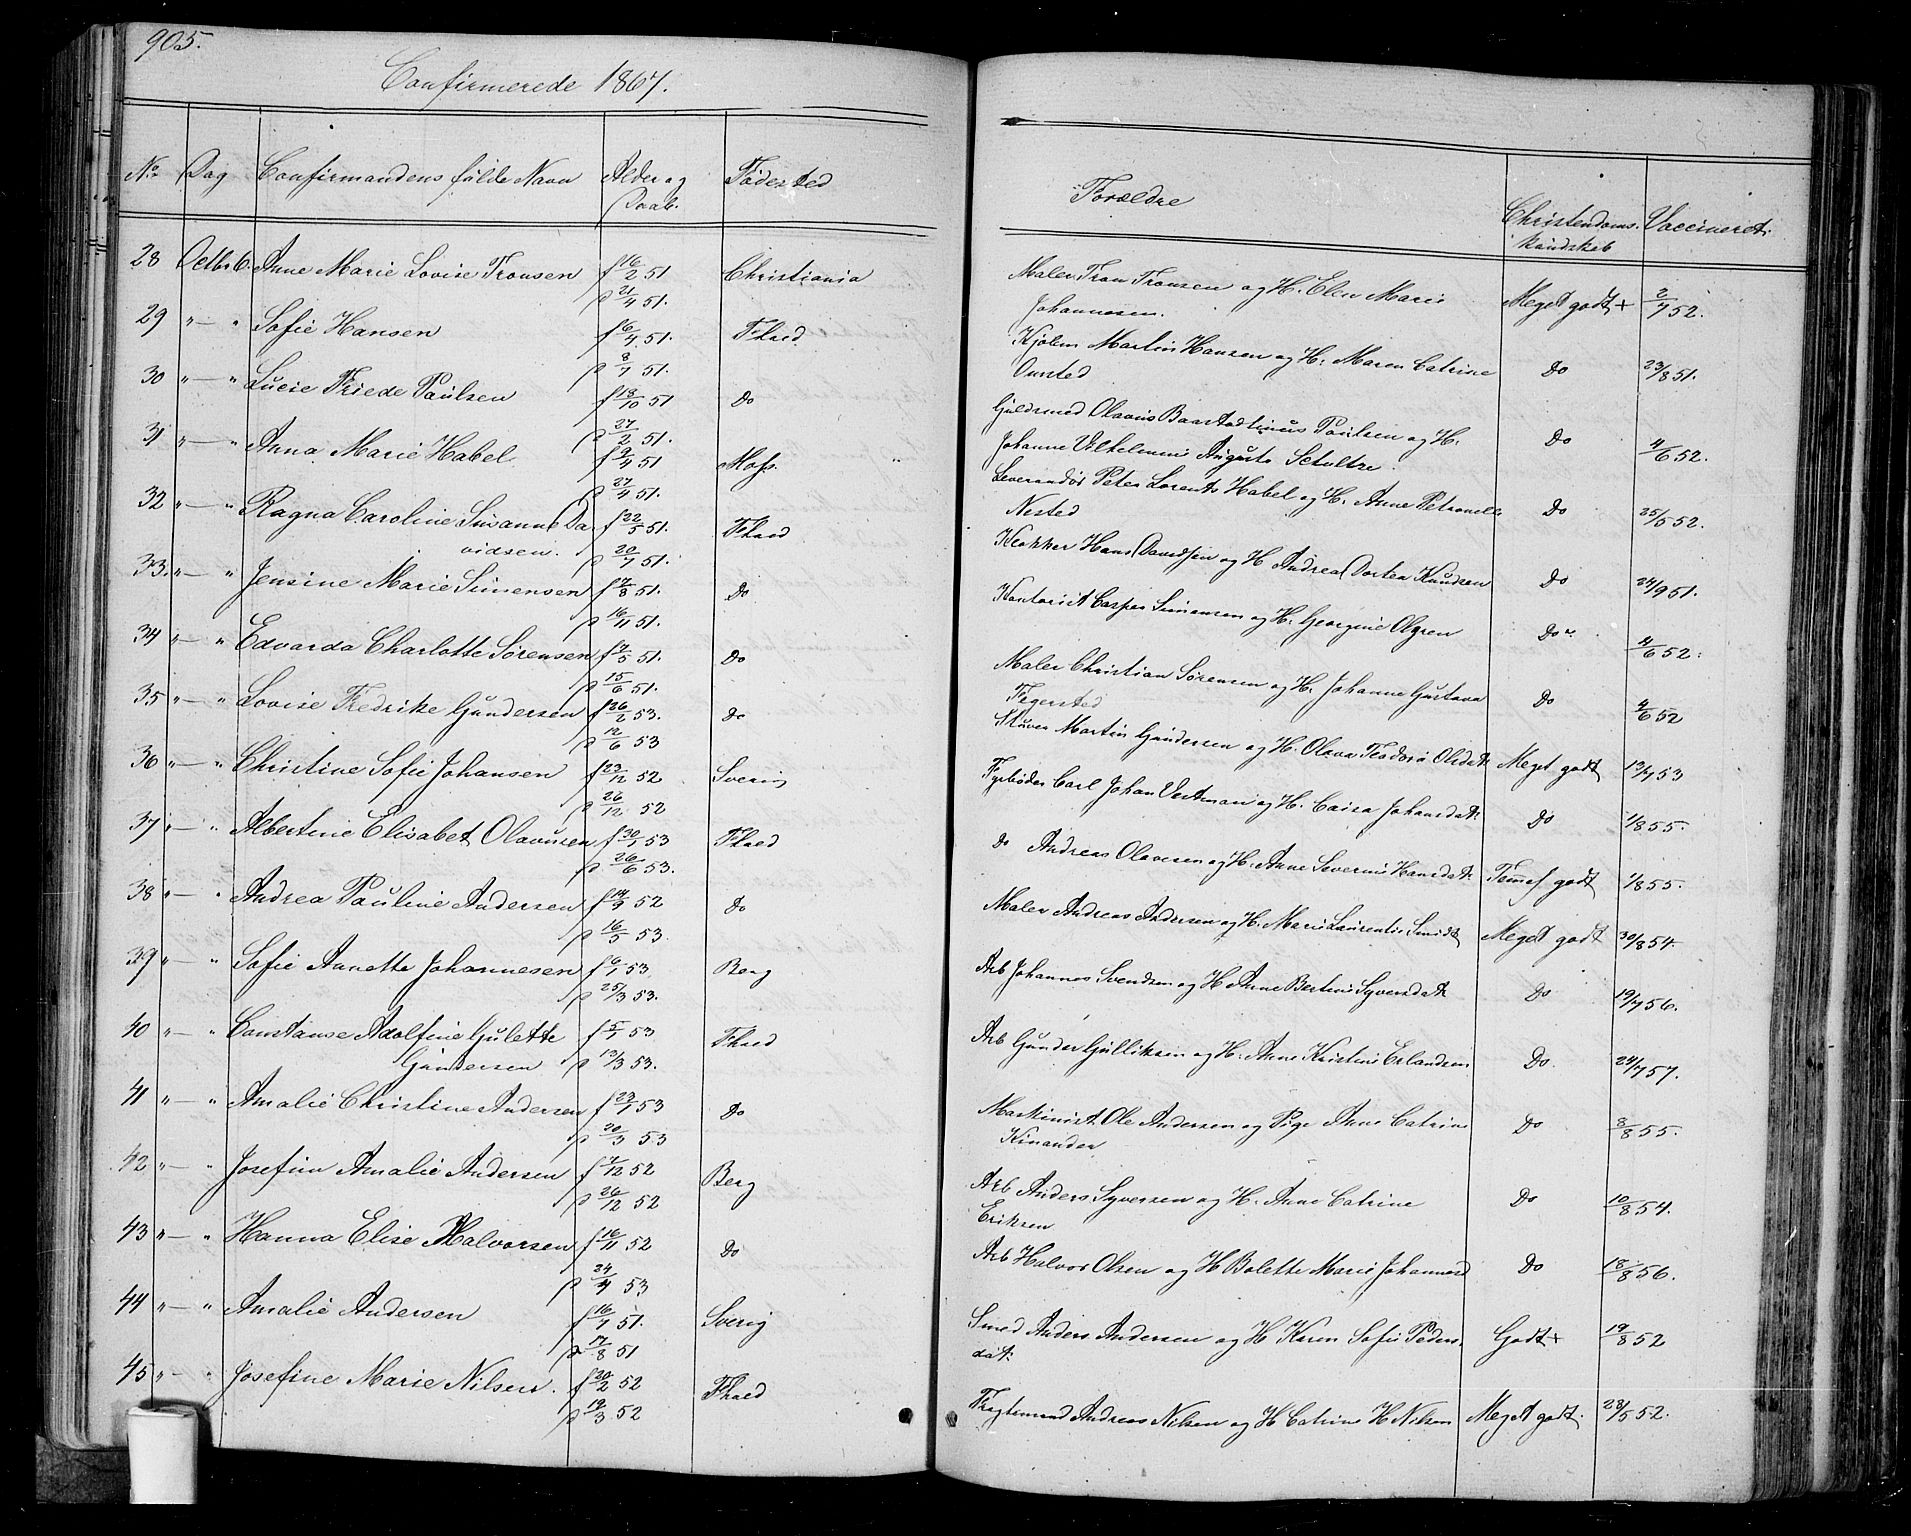 905.
Confirmerede 1867.
No Dag Confirmandens fulde Navn Alder og Daab. Födested
Forældre Christendoms-kundskab Vaccineret.
28 Octbr 6. Anne Marie Lovise Tronsen f 16/2 51 Christiania
p 21/4 51.
29 " — " Sofie Hansen f 6/4 51. Fhald
p 8/7 51.
30 " — " Lucie Friede Paulsen f 18/10 51 Do
p 27/2 51.
31 " — " Anna Marie Habel f 9/4 51 Moss
p 27/4 51.
32 " — " Ragna Caroline Susanne Da- f 22/5 51. Fhald
vidsen. p 20/7 51.
33. " — " Jensine Marie Simensen f 7/8 51. Do
p 16/11 51.
34 " — " Edvarda Charlotte Sørensen f 7/5 51. Do
p 15/6 51.
35 " — " Lovise Fredrike Gundersen f 26/2 53. Do
p 12/6 53
36 " — " Christine Sofie Johansen f 23/12 52 Sverig
p 26/12 52
37 " — " Albertine Elisabet Olavusen f 30/1 53 Fhald
p 26/6 53.
38 " — " Andrea Pauline Andersen f 14/9 52 Do
p 16/5 53.
39 " — " Sofie Annette Johannesen f 6/1 53 Berg
p 25/3 53.
40 " — " Constanse Adolfine Gulette f 5/1 53 Fhald
Gundersen p 13/3 53.
41 " — " Amalie Christine Andersen f 23/1 53 Do
p 20/3 53
42 " — " Josefine Amalie Andersen f 7/12 52 Berg
p 26/12 52
43 " — " Hanna Elise Halvorsen f 16/11 52 Do
p 24/4 53
44 " — " Amalie Andersen f 16/7 51. Sverig
p 17/8 51
45 " — " Josefine Marie Nilsen. f 20/2 52 Fhald
p 19/3 52
Maler Tron Tronsen og H. Elen Marie Meget godt + 2/7 52.
Johannesen.
Martin Hansen og H. Maren Catrine Do 23/8 51.
Onsted
Guldsmed Olavus Paulsen og H. Do 4/6 52.
Johanne Vilhelmine Augusta
Leverandör Peter Lorents Habel og H. Anne Petronelle Do 25/5 52.
Nested
Klokker Hans Davidsen og H Andrea Dortea Knudsen Do 24/9 51.
Kontorist Casper Simensen og H. Georgine Olgren Do 4/6 52.
Maler Christian Sørensen og H. Johanne Gustava Do 4/6 52
Fegersted
Stuver Martin Gundersen og H. Olava Teodora Olsdat. Meget godt 13/7 53
Fyrböder Carl Johan Vestman og H. Caisa Johansdat. Do 1/8 55.
Do Andreas Olavesen og H. Anne Severine Hansdat. Temel. godt 1/8 55.
Maler Andreas Andersen og H. Marie Laurentie Smidt Meget godt 30/8 54.
Arb Johannes Svendsen og H Anne Bertine Syversdat. Do 19/7 56.
Arb Gunder Gulliksen og H. Anne Kristine Erlandsen Do 24/7 57.
Maskinist Ole Andersen og Pige Anne Catrine Do 8/8 55.
Kinander
Arb Anders Syversen og H. Anne Catrine Do 10/8 54.
Eriksen
Arb Halvor Olsen og H Bolette Marie Johannesd Do 18/8 56.
Smed Anders Andersen og H Karen Sofie Peders Godt + 19/8 52
dat.
Fragtemand Andreas Nilsen og H Catrine H Nilsen Meget godt. 28/5 52.